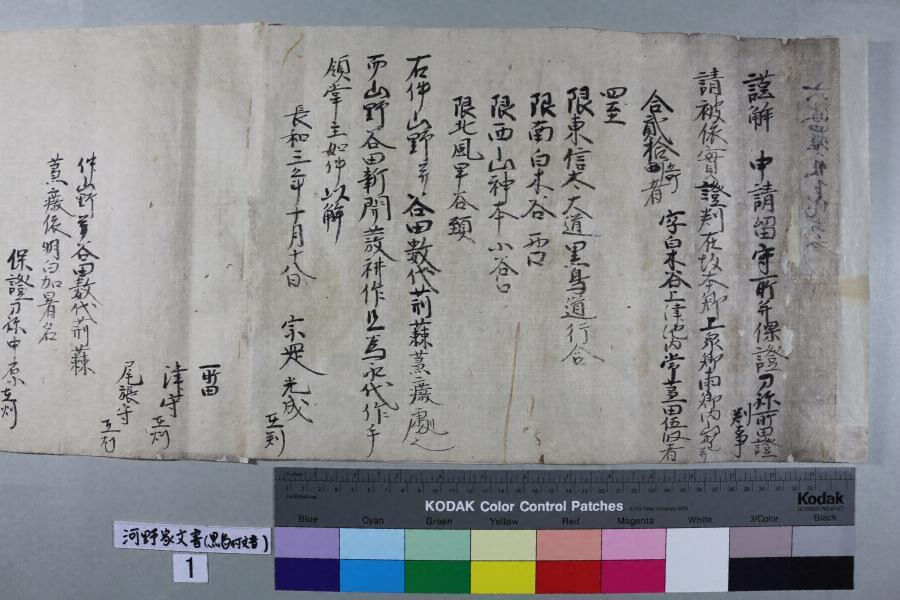 謹解　申請留守所并保證刀祢所由證判事
請被依實證判在坂本郷上泉郷両郷内
合貳拾町者　字白木谷上津池内常荒田伍段者
四至
限東信太大道黒鳥道行合
限南白木谷西口
限西山神本小谷口
限北風早谷頸
右件山野并谷田数代荊蕀荒癈處也
而山野谷田新開發耕作且為永代作手
領掌立如件以解
長和三年十月十八日　宗岳光成　在判
所由
津守　在判
尾張守　在判
件山野并谷田数代荊蕀
荒癈依明白加署名
保證刀祢中原在判
KODAK Color Control Patches
Blue Cyan Green Yellow Red Magenta White 3/Color Black
Kodak
河野家文書(黒鳥村文書)
1